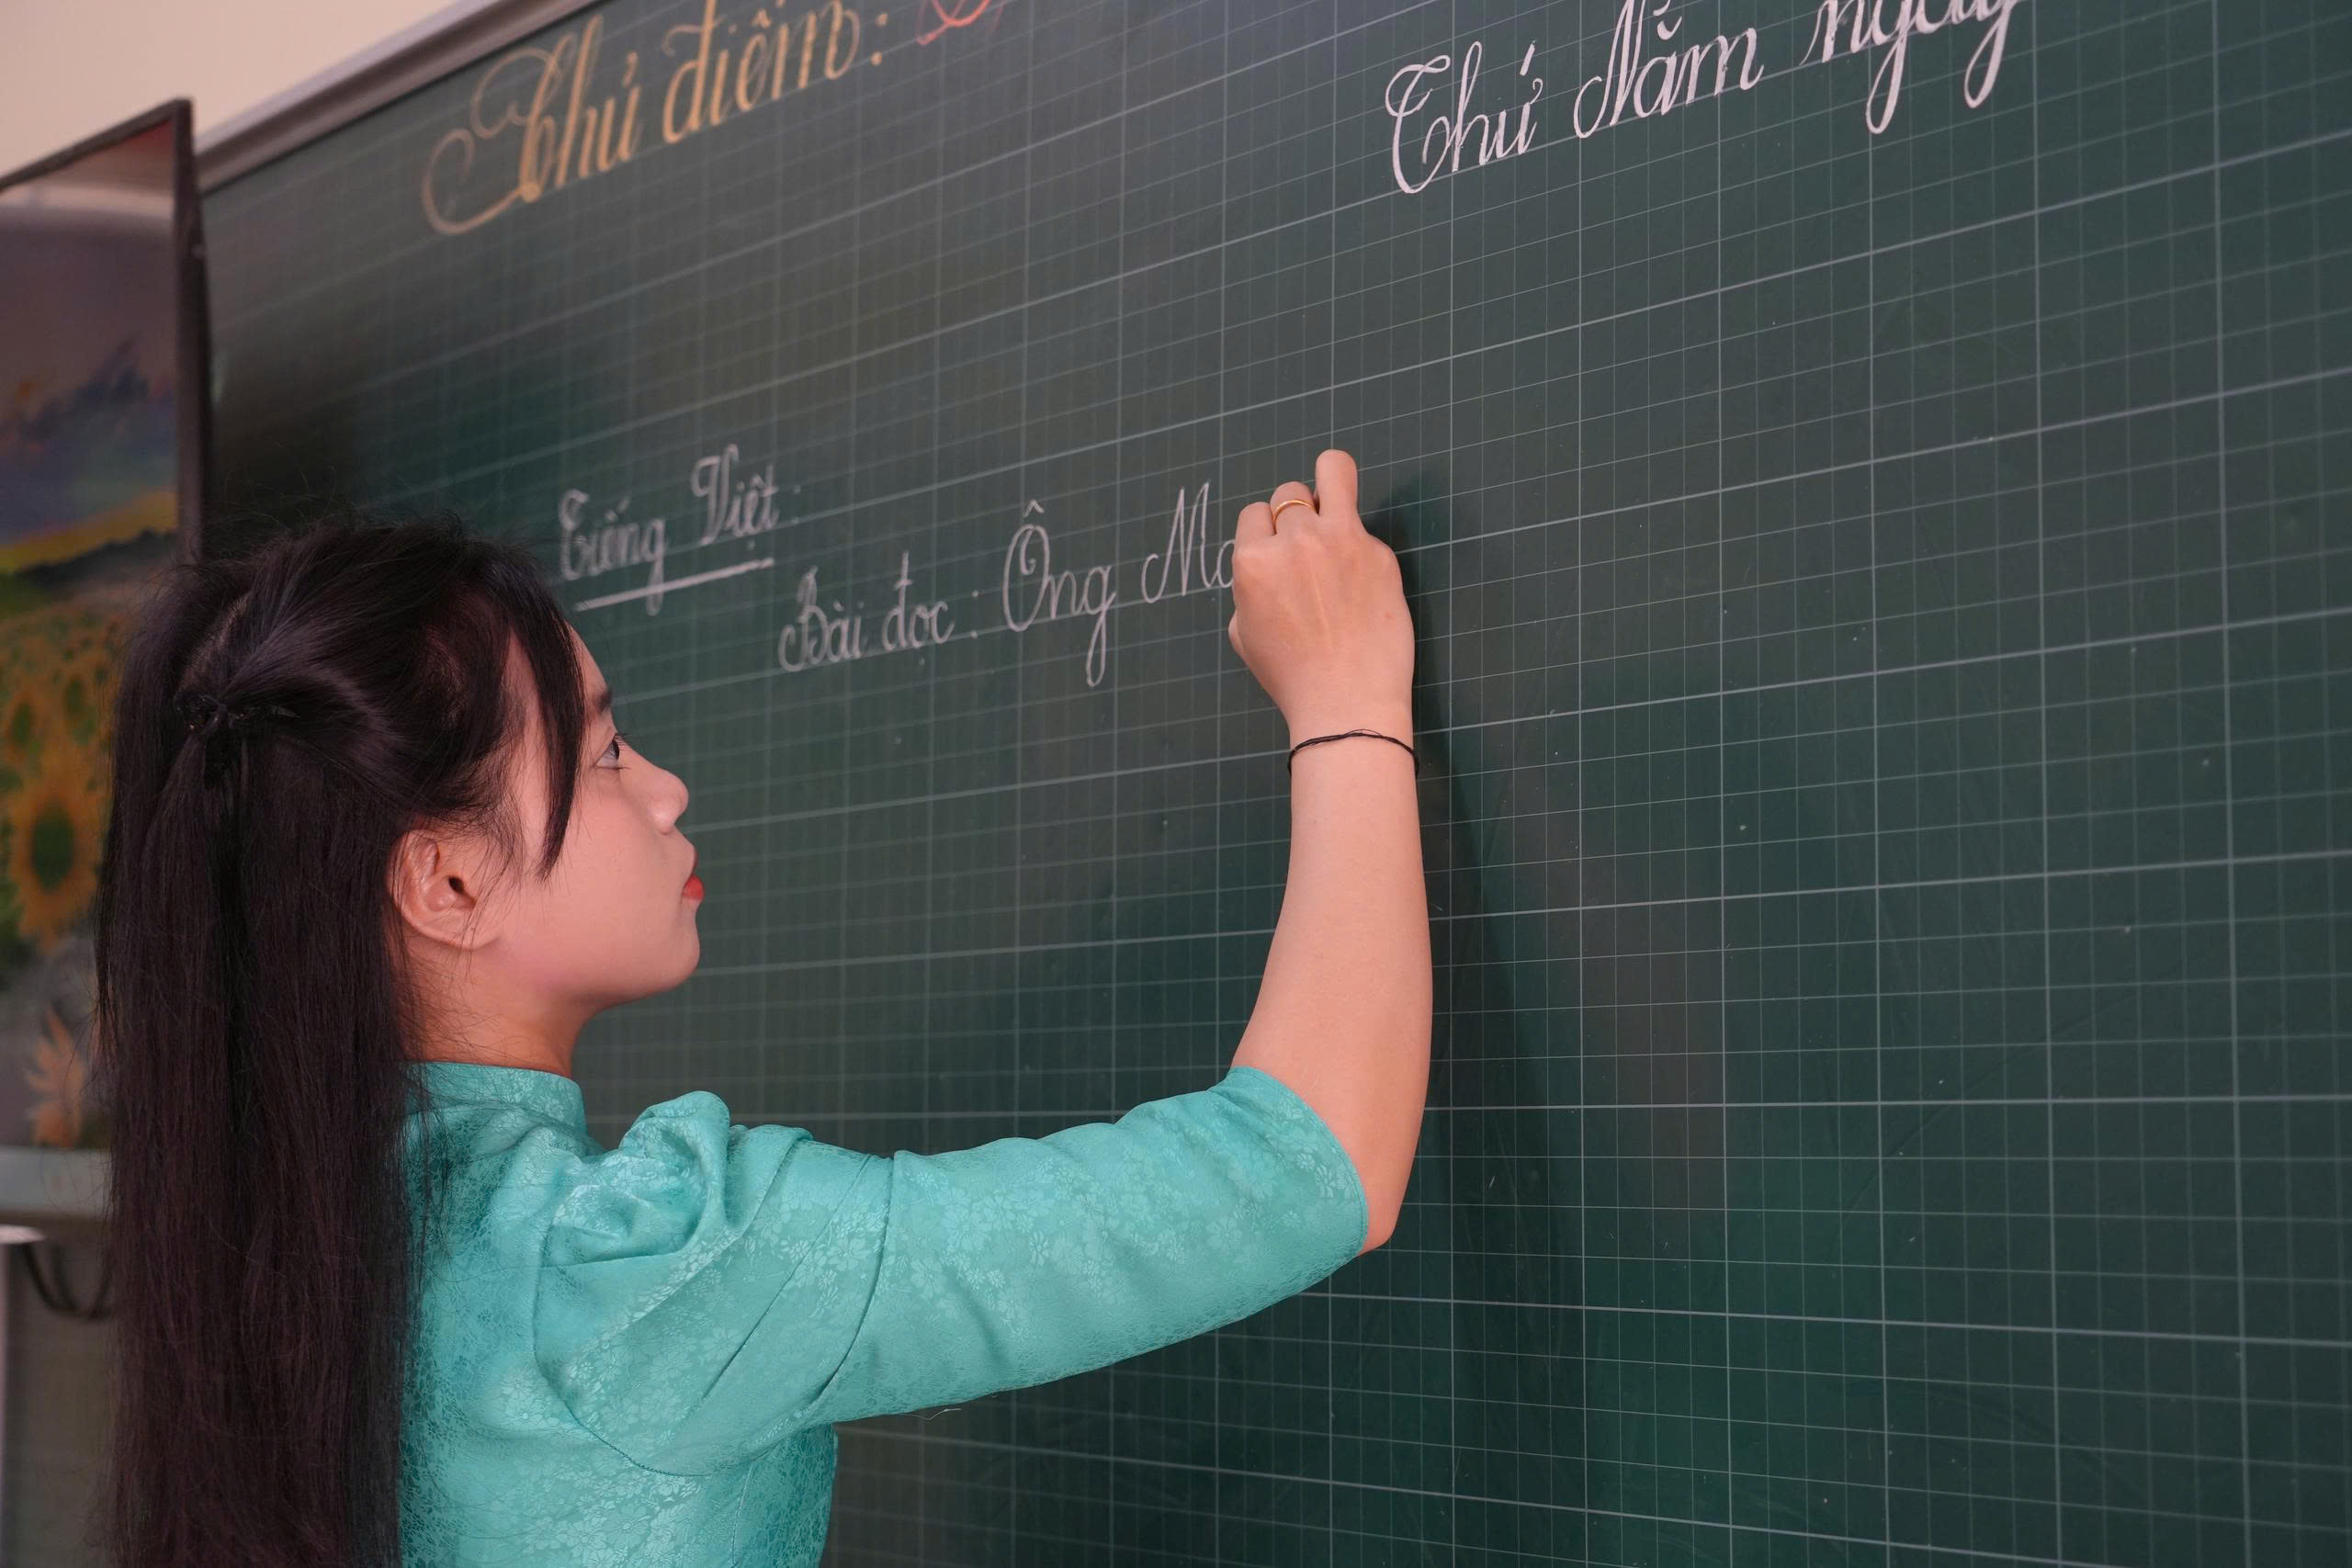 Chủ điểm:
Thứ Năm ngày
Tiếng Việt:
Bài đọc: Ông M